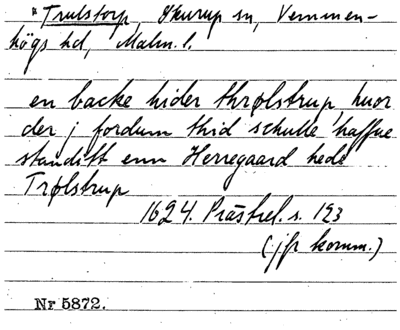 *Trulstorp, Skurup sn, Vemmen-
högs hd, Malm. l.
en backe hider thrølstrup, huor
der j fordum thid schulle haffue
standitt enn Herregaard hede
Trølstrup
1624. Prästrel. s. 123
(jfr komm.)
Nr 5872.